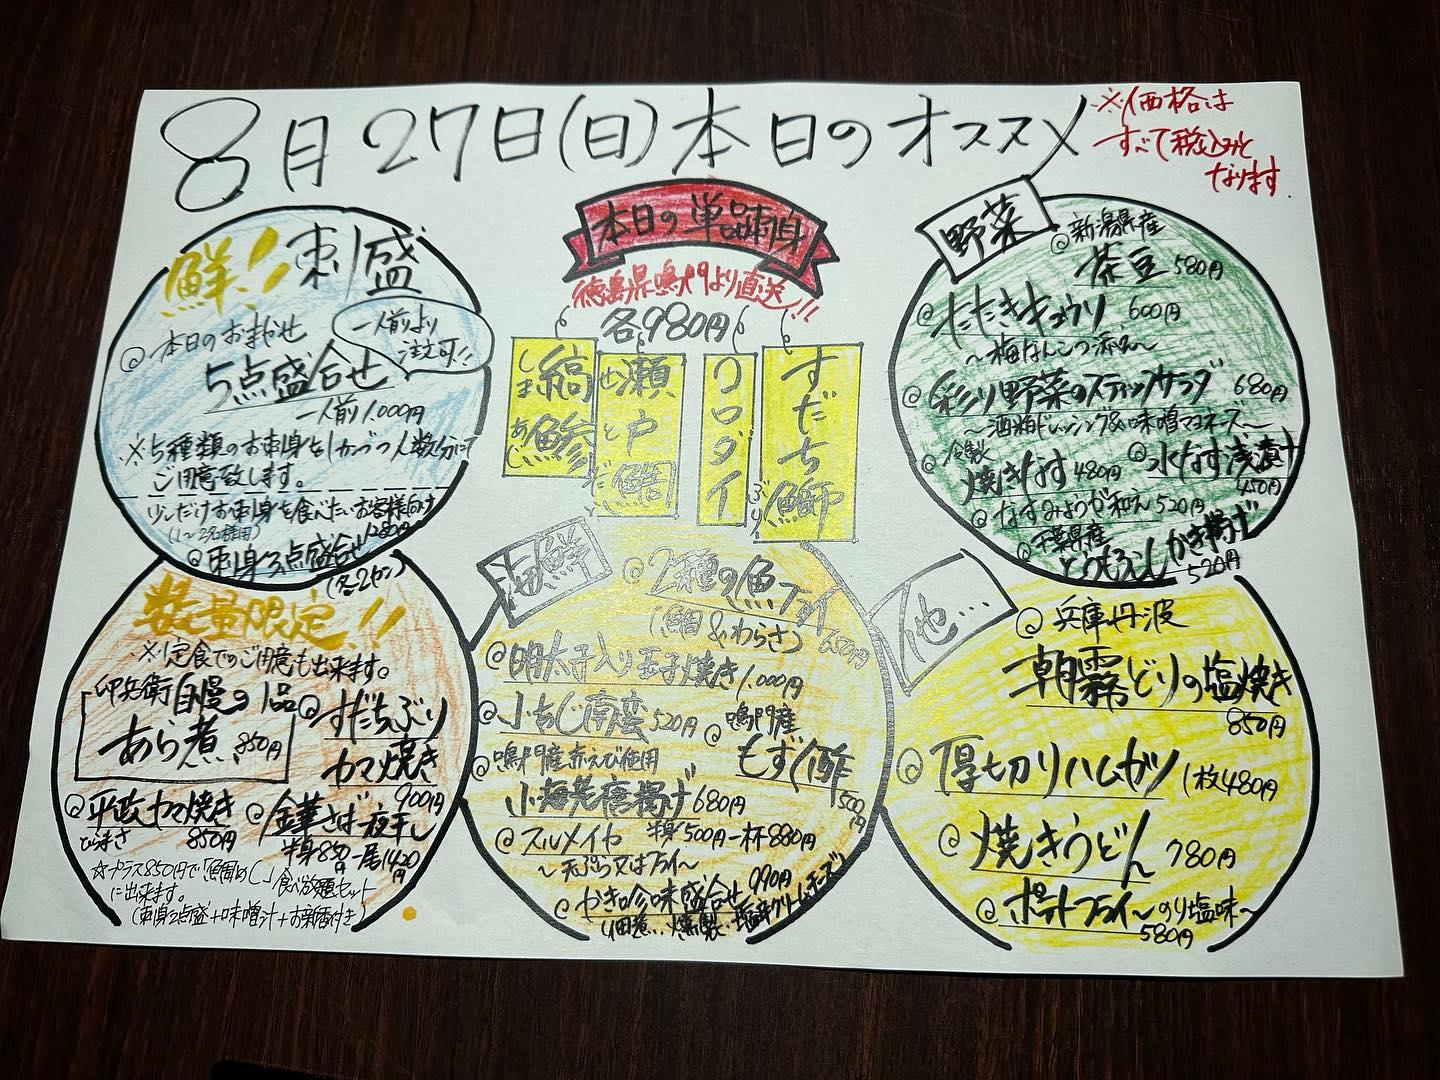 8月27日(日)本日のオススメ
※価格は
すべて税込みと
なります.
鮮!!刺盛
@本日のおまかせ
5点盛合せ
一人前1,000円
一人前より
注文可!!
※5種類のお刺身を1かづつ人数分にて
ご用意致します。
少しだけお刺身を食べたいお客様向け
(1~2名様用)
@刺身3点盛合せ1280円
(各2カン)
本日の単品刺身
徳島県鳴門より直送!!
各980円
縞鯵
しまあじ
瀬戸鯛
クロダイ
すだち鰤
ぶり
野菜
@新潟県産
茶豆 580円
@たたきキュウリ 600円
~梅なんこつ添え~
@彩り野菜のスティックサラダ 680円
~酒粕ドレッシング&味噌マヨネーズ~
@冷製
焼きなす 480円
@水なす浅漬け
450円
@なすみょうが和え 520円
@千葉県産
とうもろこしかき揚げ
520円
数量限定!!
※定食でのご用意も出来ます。
卯兵衛自慢の1品
あら煮 850円
@すだちぶり
カマ焼き
900円
@平政カマ焼き
ひらまさ 850円
@金華さば一夜干し
半身850円 一尾1420円
☆プラス850円で「鯛めし」食べ放題セット
に出来ます。
(刺身2点盛+味噌汁+お新香付き)
海鮮
@2種の魚フライ
(鯛&わらさ) 850円
@明太子入り玉子焼き 1,000円
@小あじ南蛮 520円
@鳴門産
もずく酢
500円
@鳴門産赤えび使用
小海老唐揚げ 680円
@スルメイカ 半身500円 一杯880円
~天ぷら又はフライ~
@かき珍味盛合せ 990円
(田煮…燻製・塩辛クリームチーズ)
他…
@兵庫丹波
朝霧どりの塩焼き
850円
@厚切りハムカツ 1枚480円
@焼きうどん 780円
@ポテトフライ~のり塩味~
580円